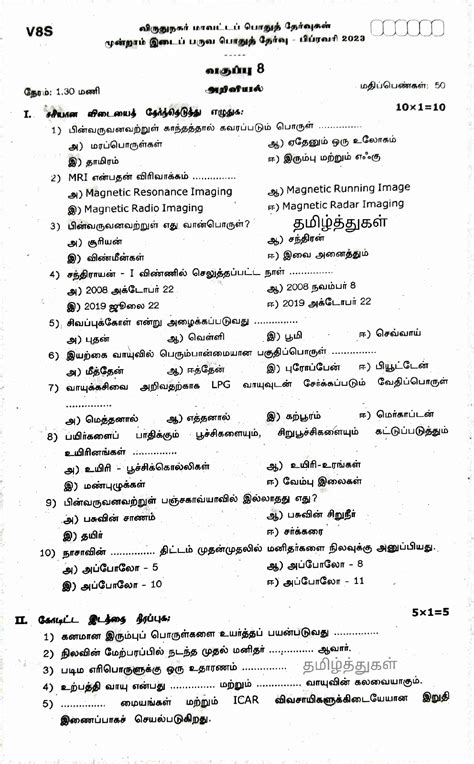 V8S
விருதுநகர் மாவட்டப் பொதுத் தேர்வுகள்
மூன்றாம் இடைப் பருவ பொதுத் தேர்வு - பிப்ரவரி 2023
வகுப்பு 8
நேரம்: 1.30 மணி அறிவியல் மதிப்பெண்கள்: 50
I. சரியான விடையைத் தேர்ந்தெடுத்து எழுதுக: 10×1=10
1) பின்வருவனவற்றுள் காந்தத்தால் கவரப்படும் பொருள் ..................
அ) மரப்பொருள்கள் ஆ) ஏதேனும் ஒரு உலோகம்
இ) தாமிரம் ஈ) இரும்பு மற்றும் எஃகு
2) MRI என்பதன் விரிவாக்கம் ..................
அ) Magnetic Resonance Imaging ஆ) Magnetic Running Image
இ) Magnetic Radio Imaging ஈ) Magnetic Radar Imaging
3) பின்வருவனவற்றுள் எது வான்பொருள்? தமிழ்த்துகள்
அ) சூரியன் ஆ) சந்திரன்
இ) விண்மீன்கள் ஈ) இவை அனைத்தும்
4) சந்திராயன் - I விண்ணில் செலுத்தப்பட்ட நாள் ..................
அ) 2008 அக்டோபர் 22 ஆ) 2008 நவம்பர் 8
இ) 2019 ஜூலை 22 ஈ) 2019 அக்டோபர் 22
5) சிவப்புக்கோள் என்று அழைக்கப்படுவது ..............
அ) புதன் ஆ) வெள்ளி இ) பூமி ஈ) செவ்வாய்
6) இயற்கை வாயுவில் பெரும்பான்மையான பகுதிப்பொருள் ..................
அ) மீத்தேன் ஆ) ஈத்தேன் இ) புரோப்பேன் ஈ) பியூட்டேன்
7) வாயுக்கசிவை அறிவதற்காக LPG வாயுவுடன் சேர்க்கப்படும் வேதிப்பொருள்
..................
அ) மெத்தனால் ஆ) எத்தனால் இ) கற்பூரம் ஈ) மெர்காப்டன்
8) பயிர்களைப் பாதிக்கும் பூச்சிகளையும், சிறுபூச்சிகளையும் கட்டுப்படுத்தும்
உயிரினங்கள் ..................
அ) உயிரி - பூச்சிக்கொல்லிகள் ஆ) உயிரி-உரங்கள்
இ) மண்புழுக்கள் ஈ) வேம்பு இலைகள்
9) பின்வருவனவற்றுள் பஞ்சகாவ்யாவில் இல்லாதது எது?
அ) பசுவின் சாணம் ஆ) பசுவின் சிறுநீர்
இ) தயிர் ஈ) சர்க்கரை
10) நாசாவின் .................. திட்டம் முதன்முதலில் மனிதர்களை நிலவுக்கு அனுப்பியது.
அ) அப்போலோ - 5 ஆ) அப்போலோ - 8
இ) அப்போலோ - 10 ஈ) அப்போலோ - 11
II. கோடிட்ட இடத்தை நிரப்புக: 5×1=5
1) கனமான இரும்புப் பொருள்களை உயர்த்தப் பயன்படுவது ..................
2) நிலவின் மேற்பரப்பில் நடந்த முதல் மனிதர் .................. ஆவார்.
3) படிம எரிபொருளுக்கு ஒரு உதாரணம் .................. தமிழ்த்துகள்
4) உற்பத்தி வாயு என்பது .............. மற்றும் .............. வாயுவின் கலவையாகும்.
5) .................. மையங்கள் மற்றும் ICAR விவசாயிகளுக்கிடையேயான இறுதி
இணைப்பாகச் செயல்படுகிறது.